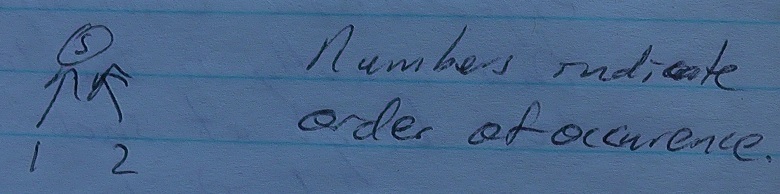 S
Numbers indicate
order of occurence.
1 2